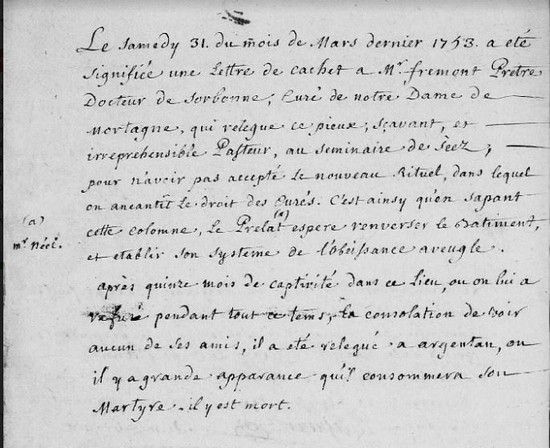 Le samedy 31. du mois de Mars dernier 1753. a eté
signifiée une Lettre de cachet a Mr. fremont Prêtre
Docteur de Sorbonne, Curé de notre Dame de
Mortagne, qui relegue ce pieux, sçavant, et
irreprehensible Pasteur, au seminaire de Seez;
pour n'avoir pas accepté le nouveau Rituel, dans lequel
on aneantit le droit des Curés. C'est ainsy qu'en sapant
cette colomne, Le Prelat (a) espere renverser le Batiment,
et etablir son systeme de l'obeissance aveugle.
(a)
mr. Néel.
après quinze mois de captivité dans ce Lieu, ou on lui a
refusé pendant tout ce tems, La consolation de voir
aucun de ses amis, il a eté relegué a argentan, ou
il y a grande apparance qu'il consommera son
Martyre. il y est mort.